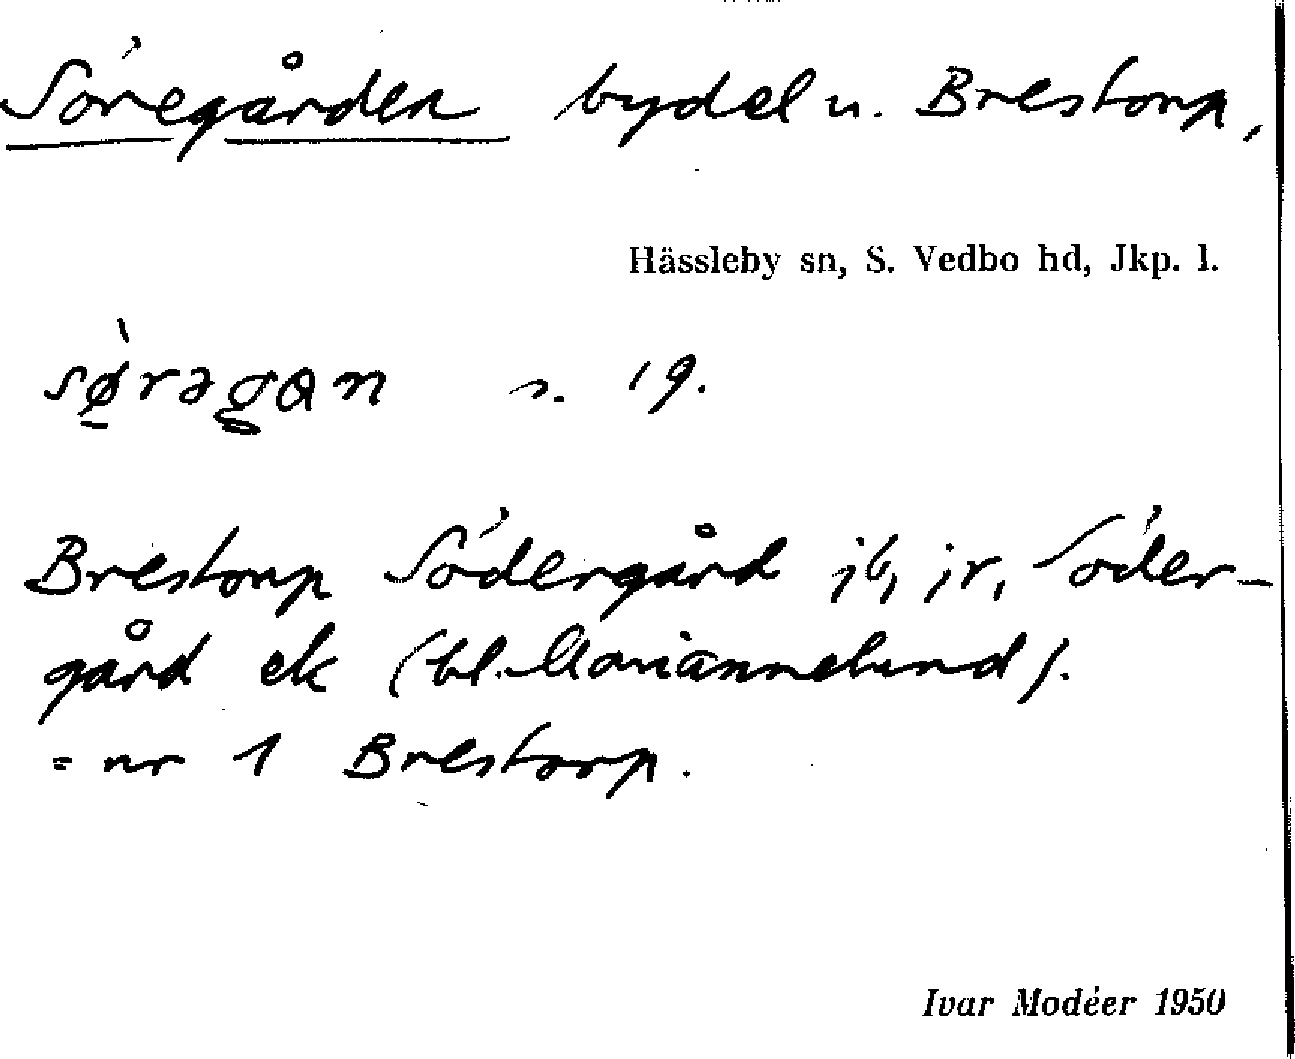 Söregården bydel u. Brestorp,
Hässleby sn, S. Vedbo hd, Jkp. l.
sø̀rəgɑn s. 19.
Brestorp Södergård jb, jr, Söder-
gård ek (bl. Mariannelund).
= nr 1 Brestorp.
Ivar Modéer 1950